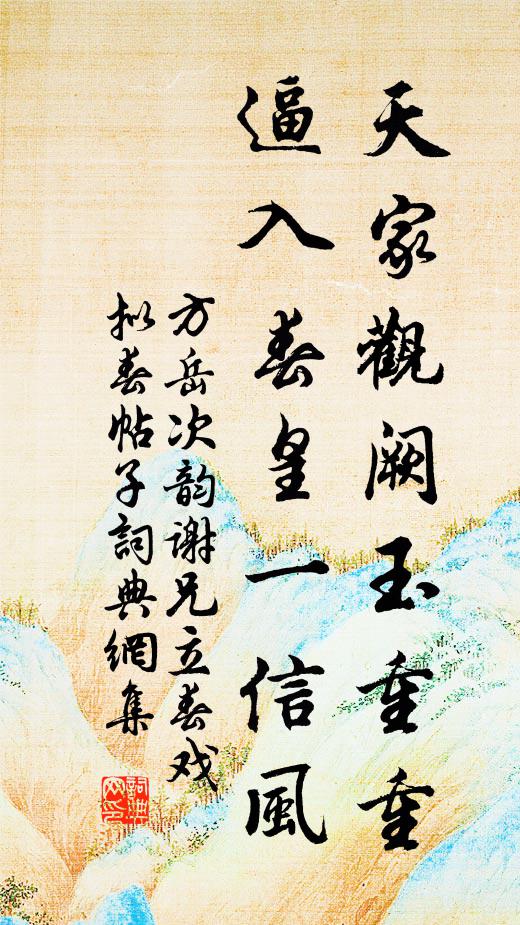 天家觀阙玉重重
逼入春皇一信風
方岳次韵谢兄立春戏
拟春帖子詞典網集
詞典網印